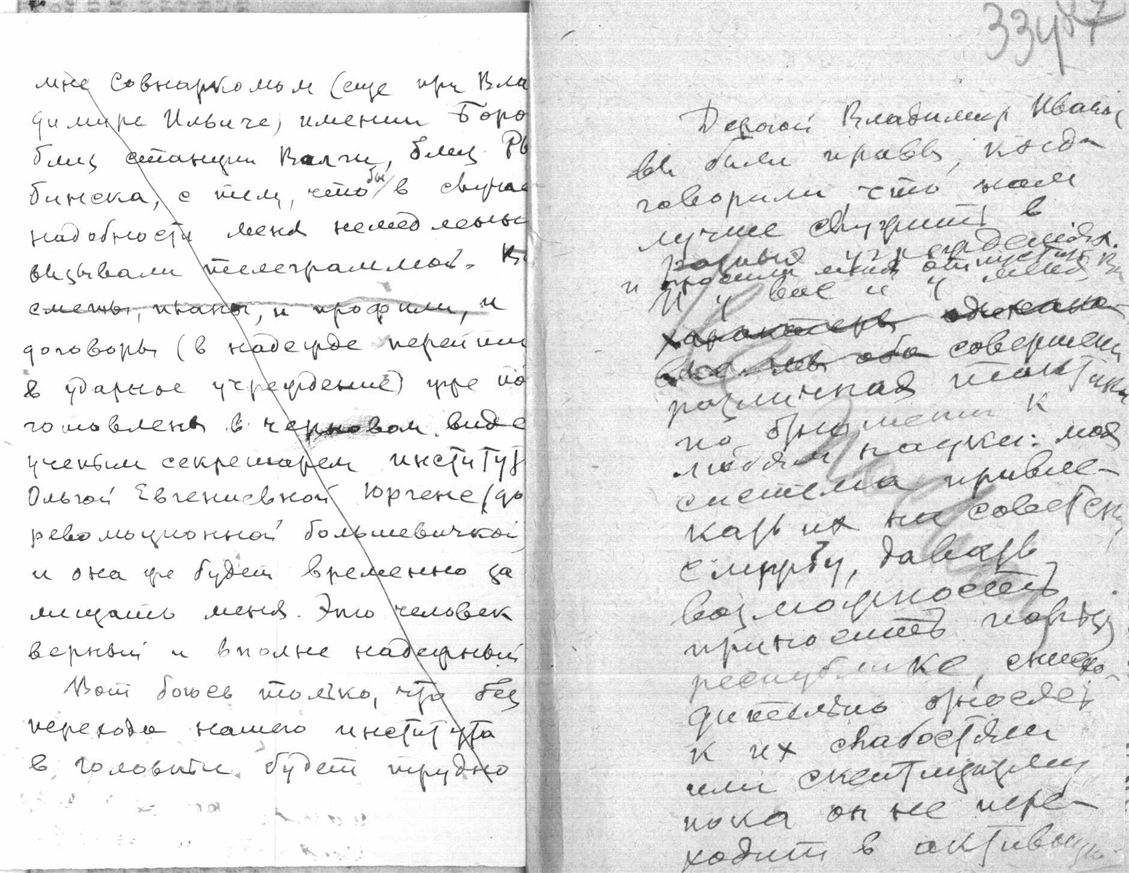 мне Совнаркомом (еще при Вла
димире Ильиче) имении Боро
близ станции Волги, близ Ры
бинска, с тем, что бы в случае
надобности меня немедленно
вызывали телеграммой.
сметы, планы, и профили, и
договоры (в надежде перейти
в ударное учреждение) уже по
готовлены в черновом виде
ученым секретарем института
Ольгой Евгениевной Юргене (до
революционной большевичкой)
и она же будет временно за
мещать меня. Это человек
верный и вполне надежный
Вот боюсь только, что без
перехода нашего института
в головъти будет трудно
334
Дорогой Владимир Иванов
вы были правы, когда
говорили что нам
лучше служить в
разных учреждениях.
и просили меня отпустить Вы
И у вас и у меня
характеры одинако
совершенн
различная тактика
по отношению к
людям науки: моя
система привле-
кать их на советск
службу, давать
возможность
приносить пользу
республике, снисхо-
дительно относясь
к их слабостям
или скептицизму
пока он не пере-
ходит в активную